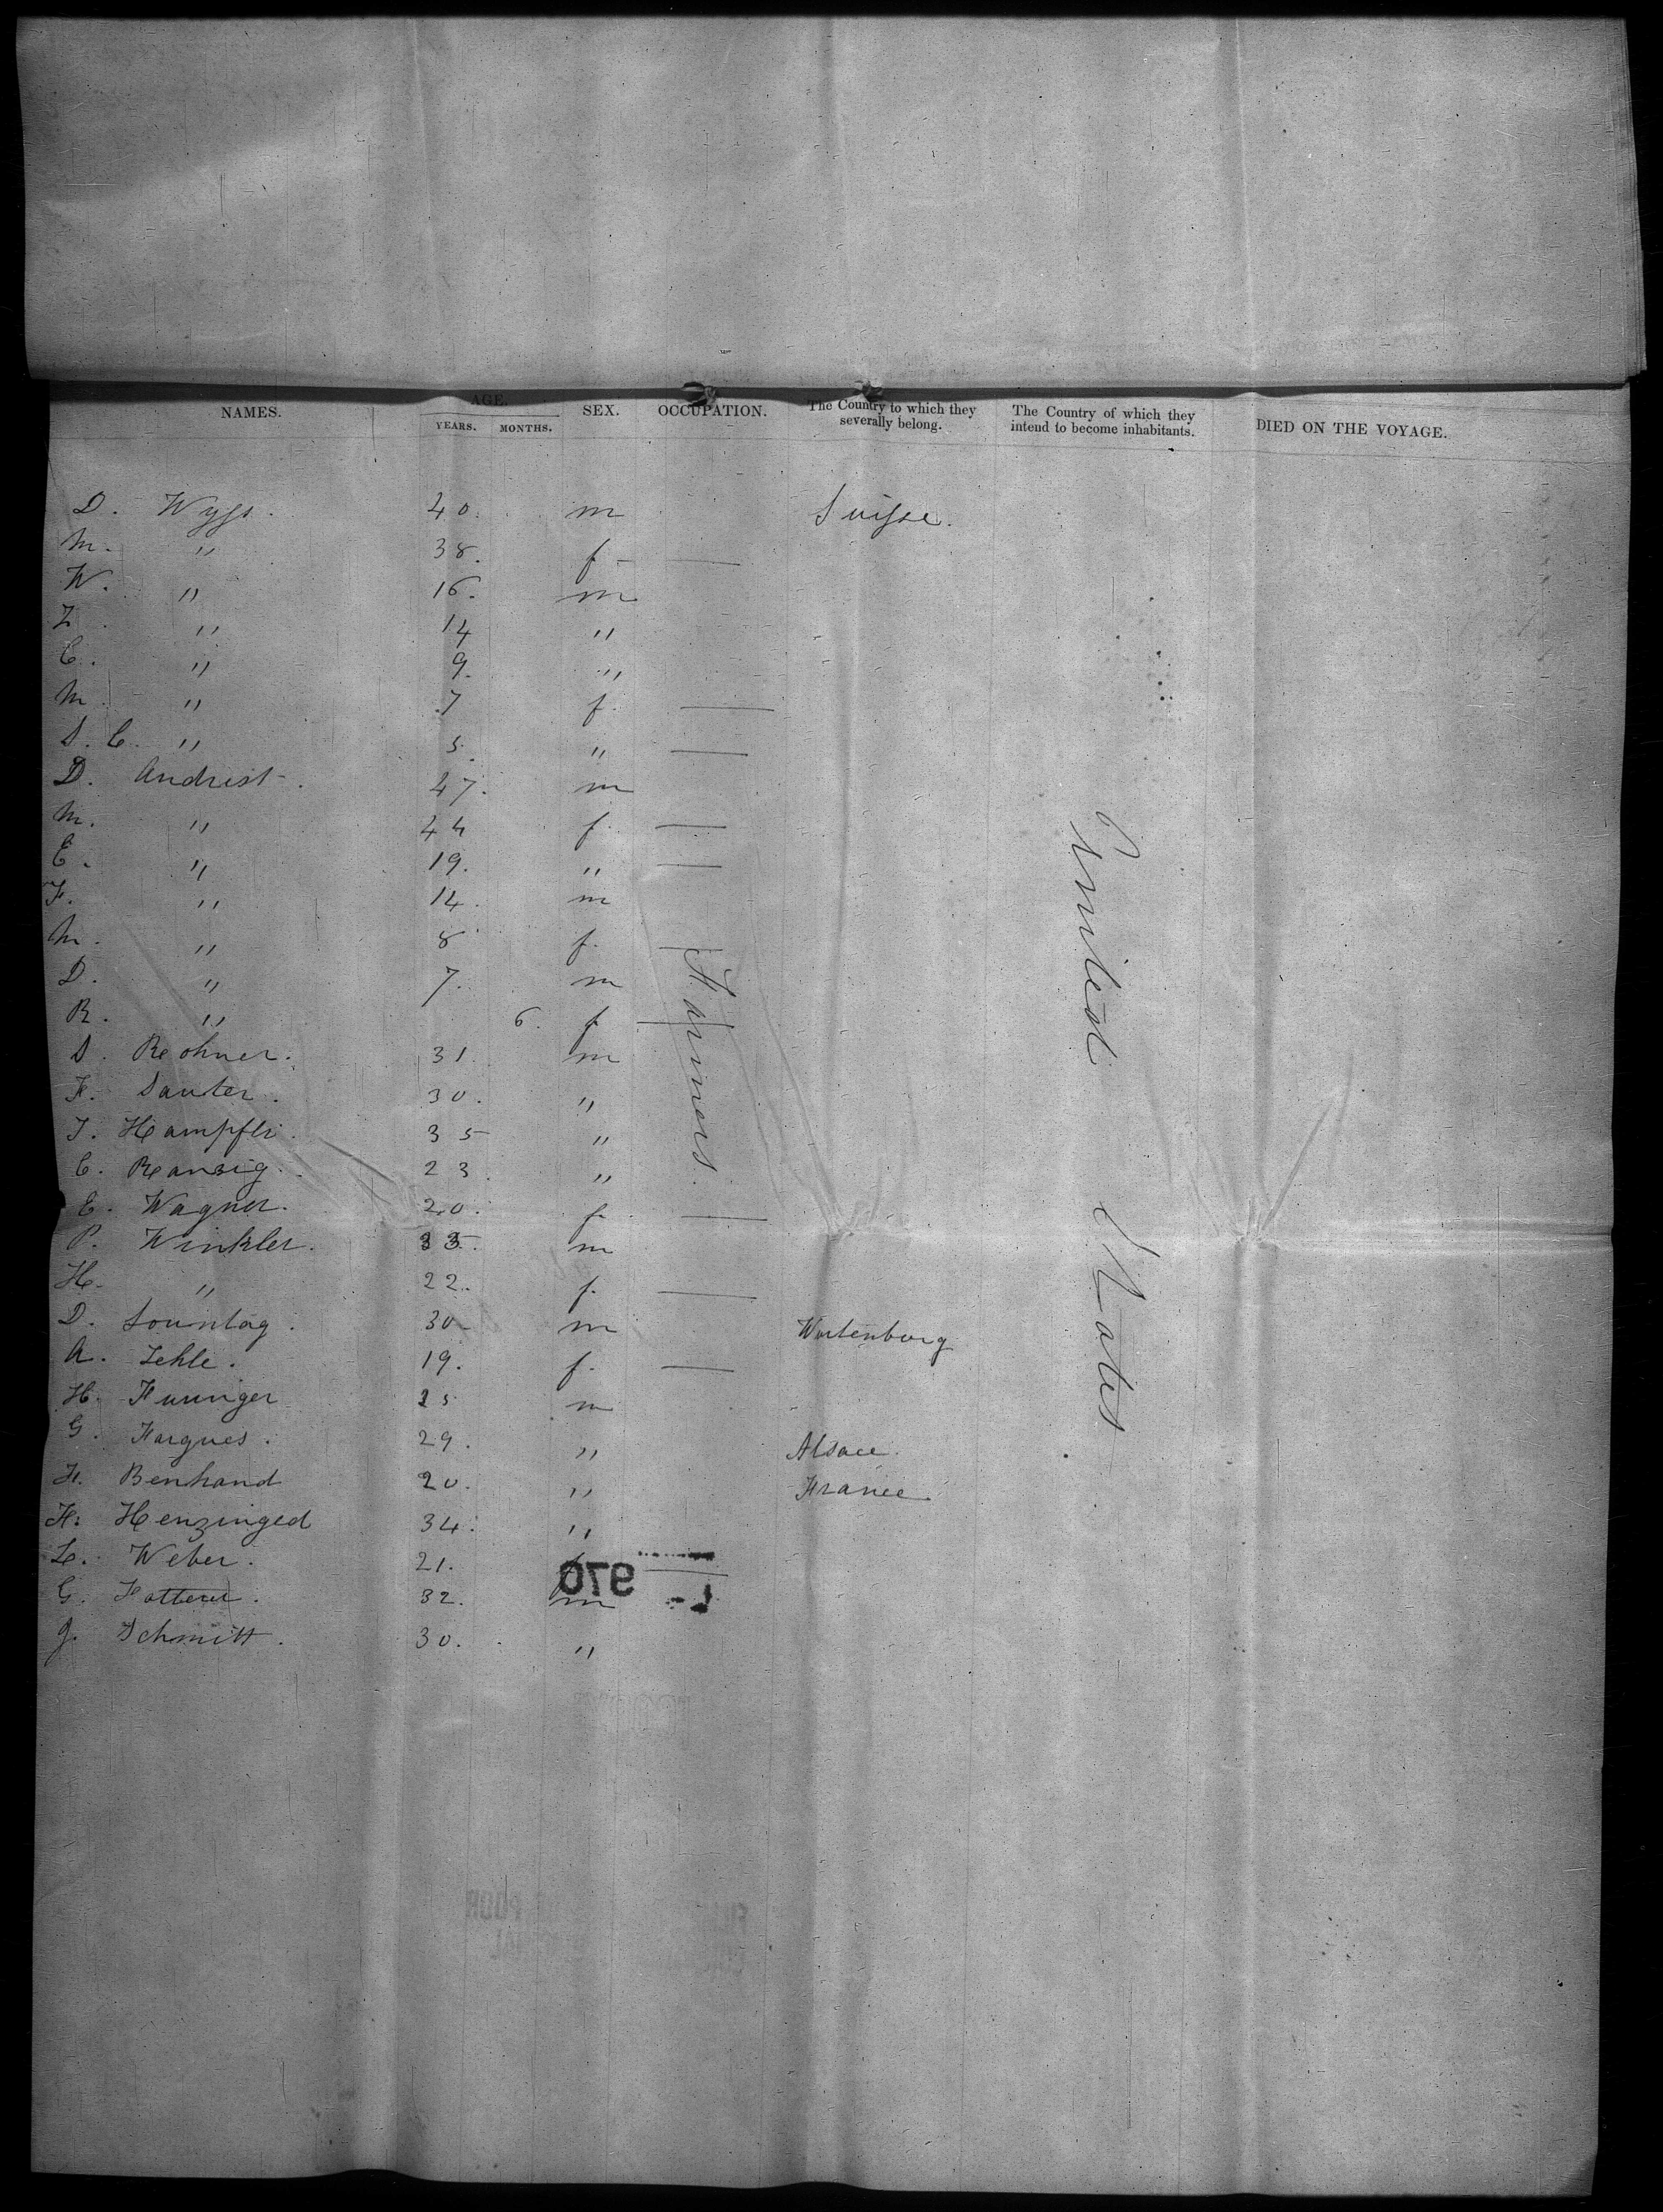 NAMES. AGE. YEARS. MONTHS. SEX. OCCUPATION. The Country to which they severally belong. The Country of which they intend to become inhabitants. DIED ON THE VOYAGE.
D. Wyss. 40. m Suisse.
M. " 38. f —
W. " 16. m
Z. " 14 "
C. " 9. "
M. " 7 f. —
S. C. " 5. " —
D. Andrist. 47. m
M. " 44 f. —
E. " 19. " —
F. " 14. m
M. " 8 f. —
D. " 7. m
R. " 6. f —
S. Rohner. 31. m
F. Sauter. 30. "
J. Hampfli. 35 "
C. Ranzig. 23. "
E. Wagner. 20. f. —
P. Winkler. 35. m
H. " 22. f. —
D. Sountag. 30 m Wurtenburg
A. Zehle. 19. f. —
H. 25 m
G. Fargues. 29. " Alsace.
F. Benhand 20. " France.
F. Henzinged 34. "
L. Weber. 21. —
G. 32. m
J. Schmitt. 30. "
Farmers.
United States
970